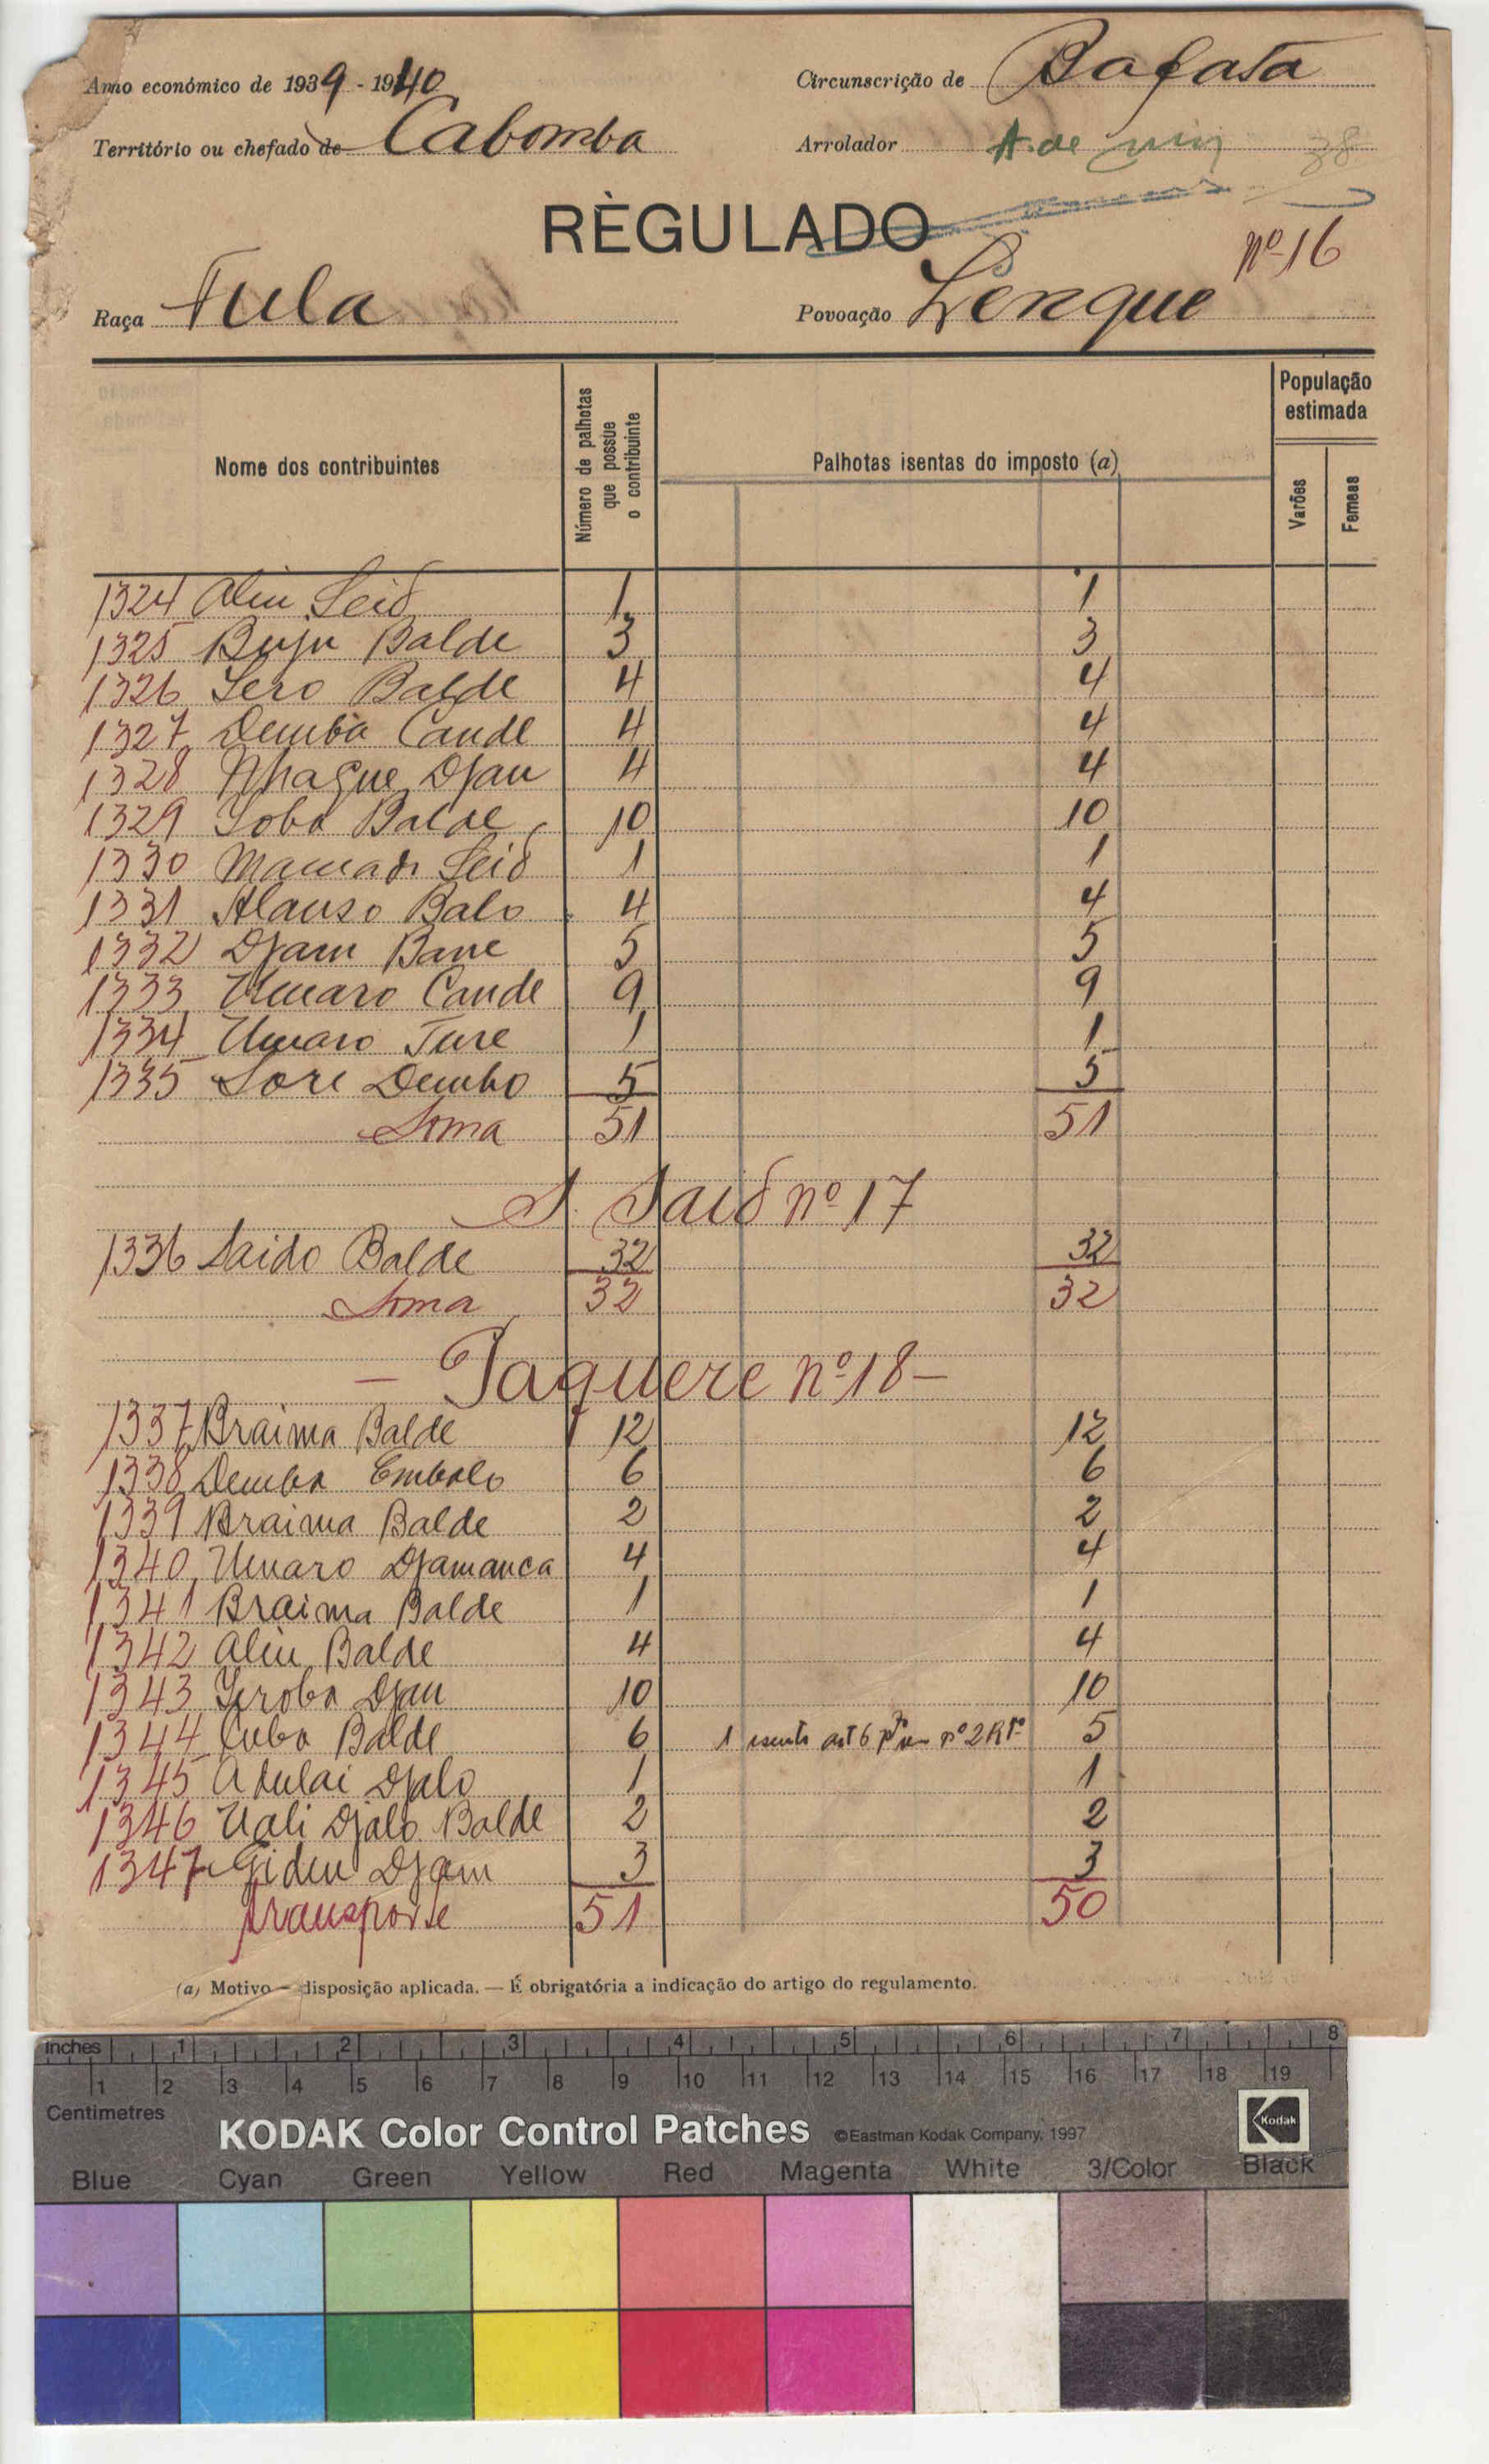 Anno económico de 1939 - 1940
Circunscrição de Bafata
Território ou chefado de Cabomba
Arrolador A. de
38
RÈGULADO
nº 16
Raça Fula
Povoação Lenque
Nome dos contribuintes
Número de palhotas que possue o contribuinte
Palhotas isentas do imposto (a)
População estimada
Varões
Femeas
1324 Aliu Seid 1 1
1325 Buju Balde 3 3
1326 Sero Balde 4 4
1327 Demba Cande 4 4
1328 Nhague Djau 4 4
1329 Ioba Balde 10 10
1330 Mamadi Seid 1 1
1331 Alanso Balo 4 4
1332 Djam Bane 5 5
1333 Umaro Cande 9 9
1334 Umaro Ture 1 1
1335 Sori Dembo 5 5
Soma 51 51
S. Said nº 17
1336 Saido Balde 32 32
Soma 32 32
- Paquere nº 18 -
1337 Braima Balde 12 12
1338 Demba Embalo 6 6
1339 Braima Balde 2 2
1340 Umaro Djamanca 4 4
1341 Braima Balde 1 1
1342 Aliu Balde 4 4
1343 Ieroba Djau 10 10
1344 Cuba Balde 6 1 isento art 6 nº 2 5
1345 Adulai Djalo 1 1
1346 Uali Djalo Balde 2 2
1347 Gideu Djam 3 3
transporte 51 50
(a) Motivo — disposição aplicada. — É obrigatória a indicação do artigo do regulamento.
inches 1 2 3 4 5 6 7 8
1 2 3 4 5 6 7 8 9 10 11 12 13 14 15 16 17 18 19
Centimetres
KODAK Color Control Patches ©Eastman Kodak Company, 1997
Kodak
Blue Cyan Green Yellow Red Magenta White 3/Color Black